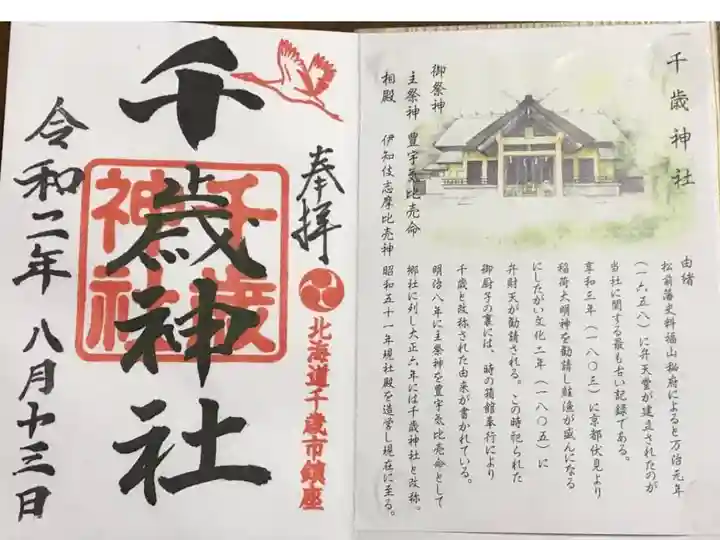 奉拝
北海道千歳市鎮座
千歳神社
千歳神社
令和二年 八月十三日
千歳神社
御祭神
主祭神 豊宇気比売命
相殿 伊知伎志摩比売神
由緒
松前藩史料福山秘府によると万治元年
(一六五八)に弁天堂が建立されたのが
当社に関する最も古い記録である。
享和三年(一八〇三)に京都伏見より
稲荷大明神を勧請し鮭漁が盛んになる
にしたがい文化二年(一八〇五)に
弁財天が勧請される。この時祀られた
御厨子の裏には、時の箱館奉行により
千歳と改称された由来が書かれている。
明治八年に主祭神を豊宇気比売命として
郷社に列し大正六年には千歳神社と改称。
昭和五十一年現社殿を造営し現在に至る。